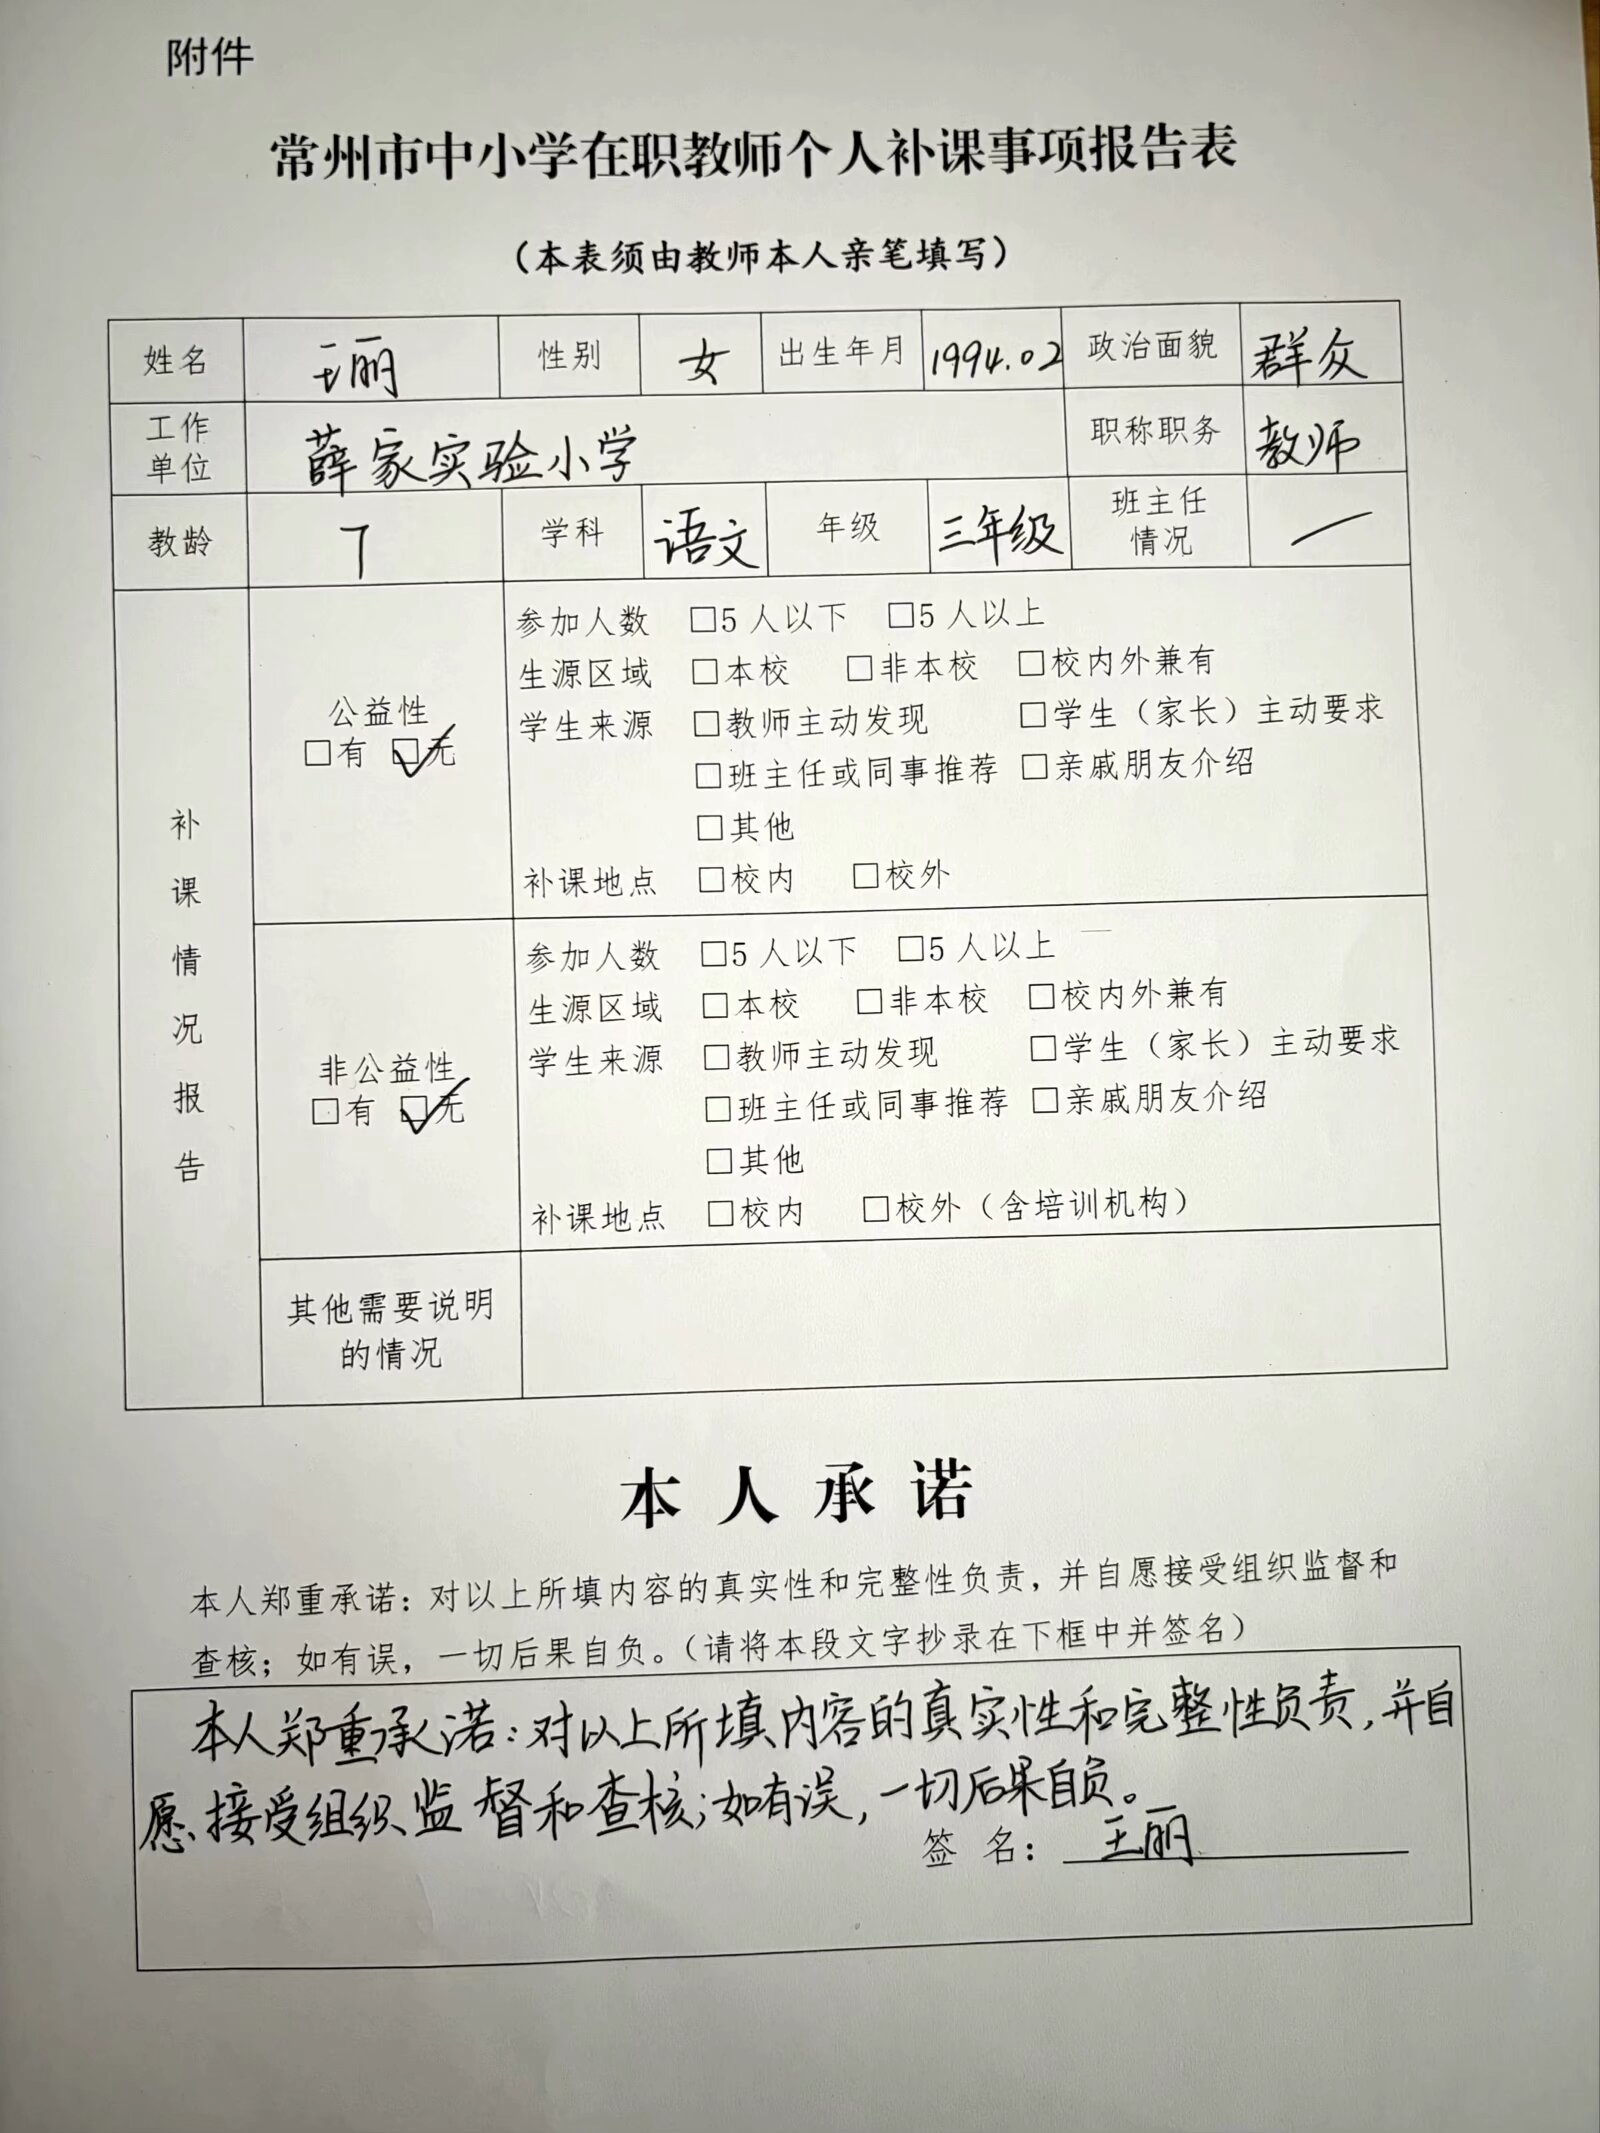 附件
常州市中小学在职教师个人补课事项报告表
（本表须由教师本人亲笔填写）
姓名 王丽 性别 女 出生年月 1994.02 政治面貌 群众
工作单位 薛家实验小学 职称职务 教师
教龄 7 学科 语文 年级 三年级 班主任情况 /
补课情况报告
公益性
□有 ☑无
参加人数 □5 人以下 □5 人以上
生源区域 □本校 □非本校 □校内外兼有
学生来源 □教师主动发现 □学生（家长）主动要求
□班主任或同事推荐 □亲戚朋友介绍
□其他
补课地点 □校内 □校外
非公益性
□有 ☑无
参加人数 □5 人以下 □5 人以上
生源区域 □本校 □非本校 □校内外兼有
学生来源 □教师主动发现 □学生（家长）主动要求
□班主任或同事推荐 □亲戚朋友介绍
□其他
补课地点 □校内 □校外（含培训机构）
其他需要说明
的情况
本人承诺
本人郑重承诺：对以上所填内容的真实性和完整性负责，并自愿接受组织监督和
查核；如有误，一切后果自负。（请将本段文字抄录在下框中并签名）
本人郑重承诺：对以上所填内容的真实性和完整性负责，并自
愿接受组织监督和查核；如有误，一切后果自负。
签 名： 王丽